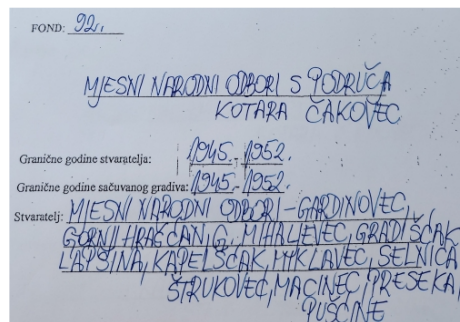 FOND: 92.
MJESNI NARODNI ODBORI S PODRUČJA
KOTARA ČAKOVEC
Granične godine stvaratelja: 1945. - 1952.
Granične godine sačuvanog gradiva: 1945. - 1952.
Stvaratelj: MJESNI NARODNI ODBORI - GARDINOVEC,
GORNJI HRAŠĆAN, G. MIHALJEVEC, GRADIŠČAK
LAPŠINA, KAPELŠČAK, MIKLAVEC, SELNICA
ŠTRUKOVEC, MACINEC, PRESEKA,
PUŠĆINE